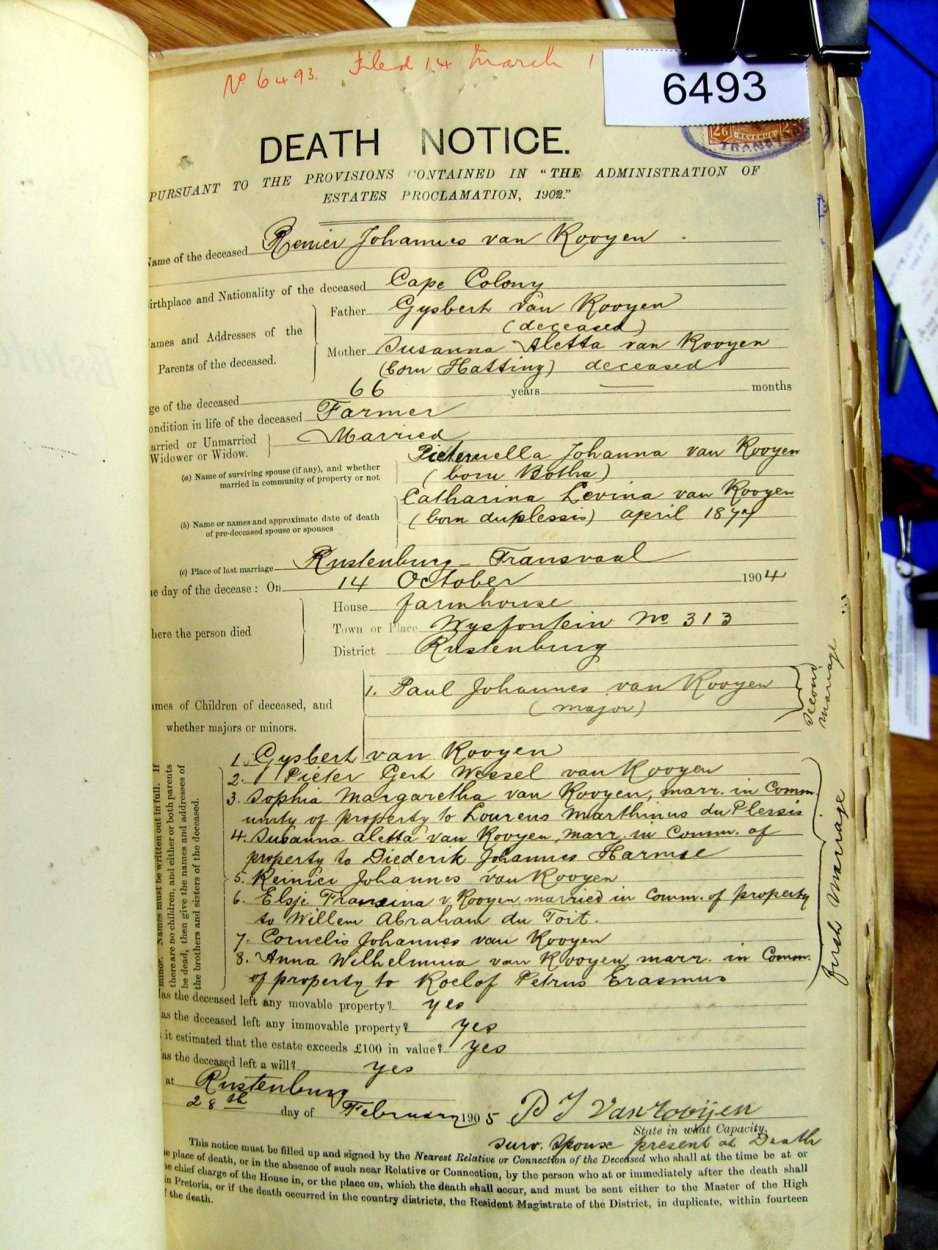 No 6493. Filed 14 March 1
6493
REVENUE
TRANS
DEATH NOTICE.
PURSUANT TO THE PROVISIONS CONTAINED IN "THE ADMINISTRATION OF
ESTATES PROCLAMATION, 1902."
Name of the deceased Renier Johannes van Rooyen
irthplace and Nationality of the deceased Cape Colony
ames and Addresses of the Parents of the deceased.
Father Gysbert van Rooyen
(deceased)
Mother Susanna Aletta van Rooyen
(born Hatting) deceased
ge of the deceased 66 years — months
ondition in life of the deceased Farmer
arried or Unmarried Widower or Widow. Married
(a) Name of surviving spouse (if any), and whether married in community of property or not
Pieternella Johanna van Rooyen
(born Botha)
(b) Name or names and approximate date of death of pre-deceased spouse or spouses
Catharina Levina van Rooyen
(born duplessis) april 187
(c) Place of last marriage Rustenburg Transvaal
he day of the decease: On 14 October 1904
here the person died
House farmhouse
Town or Place Wysfontein No 313
District Rustenburg
ames of Children of deceased, and whether majors or minors.
1. Paul Johannes van Rooyen
(major)
second marriage
1. Gysbert van Rooyen
2. Pieter Gert Wessel van Rooyen
3. Sophia Margaretha van Rooyen, marr. in Comm-
unity of property to Lourens Marthinus du Plessis
4. Susanna Aletta van Rooyen, marr. in Comm. of
property to Diederik Johannes Harmse
5. Reinier Johannes van Rooyen
6. Elsje Francina v Rooyen, married in Comm. of property
to Willem Abraham du Toit.
7. Cornelis Johannes van Rooyen
8. Anna Wilhelmina van Rooyen marr. in Comm.
of property to Roelof Petrus Erasmus
first marriage
minor. Names must be written out in full. If
there are no children, and either or both parents
be dead, then give the names and addresses of
the brothers and sisters of the deceased.
as the deceased left any movable property? yes
as the deceased left any immovable property? yes
it estimated that the estate exceeds £100 in value? yes
as the deceased left a will? yes
at Rustenburg
28th day of February 1905 P J VanRooijen
State in what Capacity,
surv. spouse present at Death
This notice must be filled up and signed by the Nearest Relative or Connection of the Deceased who shall at the time be at or
e place of death, or in the absence of such near Relative or Connection, by the person who at or immediately after the death shall
e chief charge of the House in, or the place on, which the death shall occur, and must be sent either to the Master of the High
in Pretoria, or if the death occurred in the country districts, the Resident Magistrate of the District, in duplicate, within fourteen
f the death.